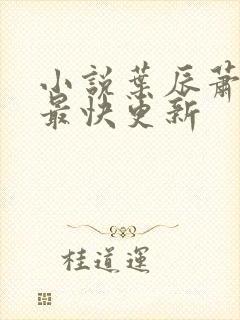 小説葉辰蕭
最快更新
桂道運